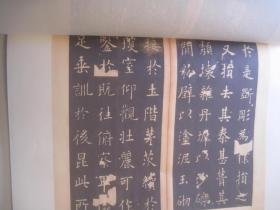 於是斲彫為樸損之
又損去其泰甚葺其
頹壞雜丹墀以沙礫
間粉壁以塗泥玉砌
接於土階茅茨續於
瓊室仰觀壯麗可作
鑒於既往俯察卑
足垂訓於後昆此所